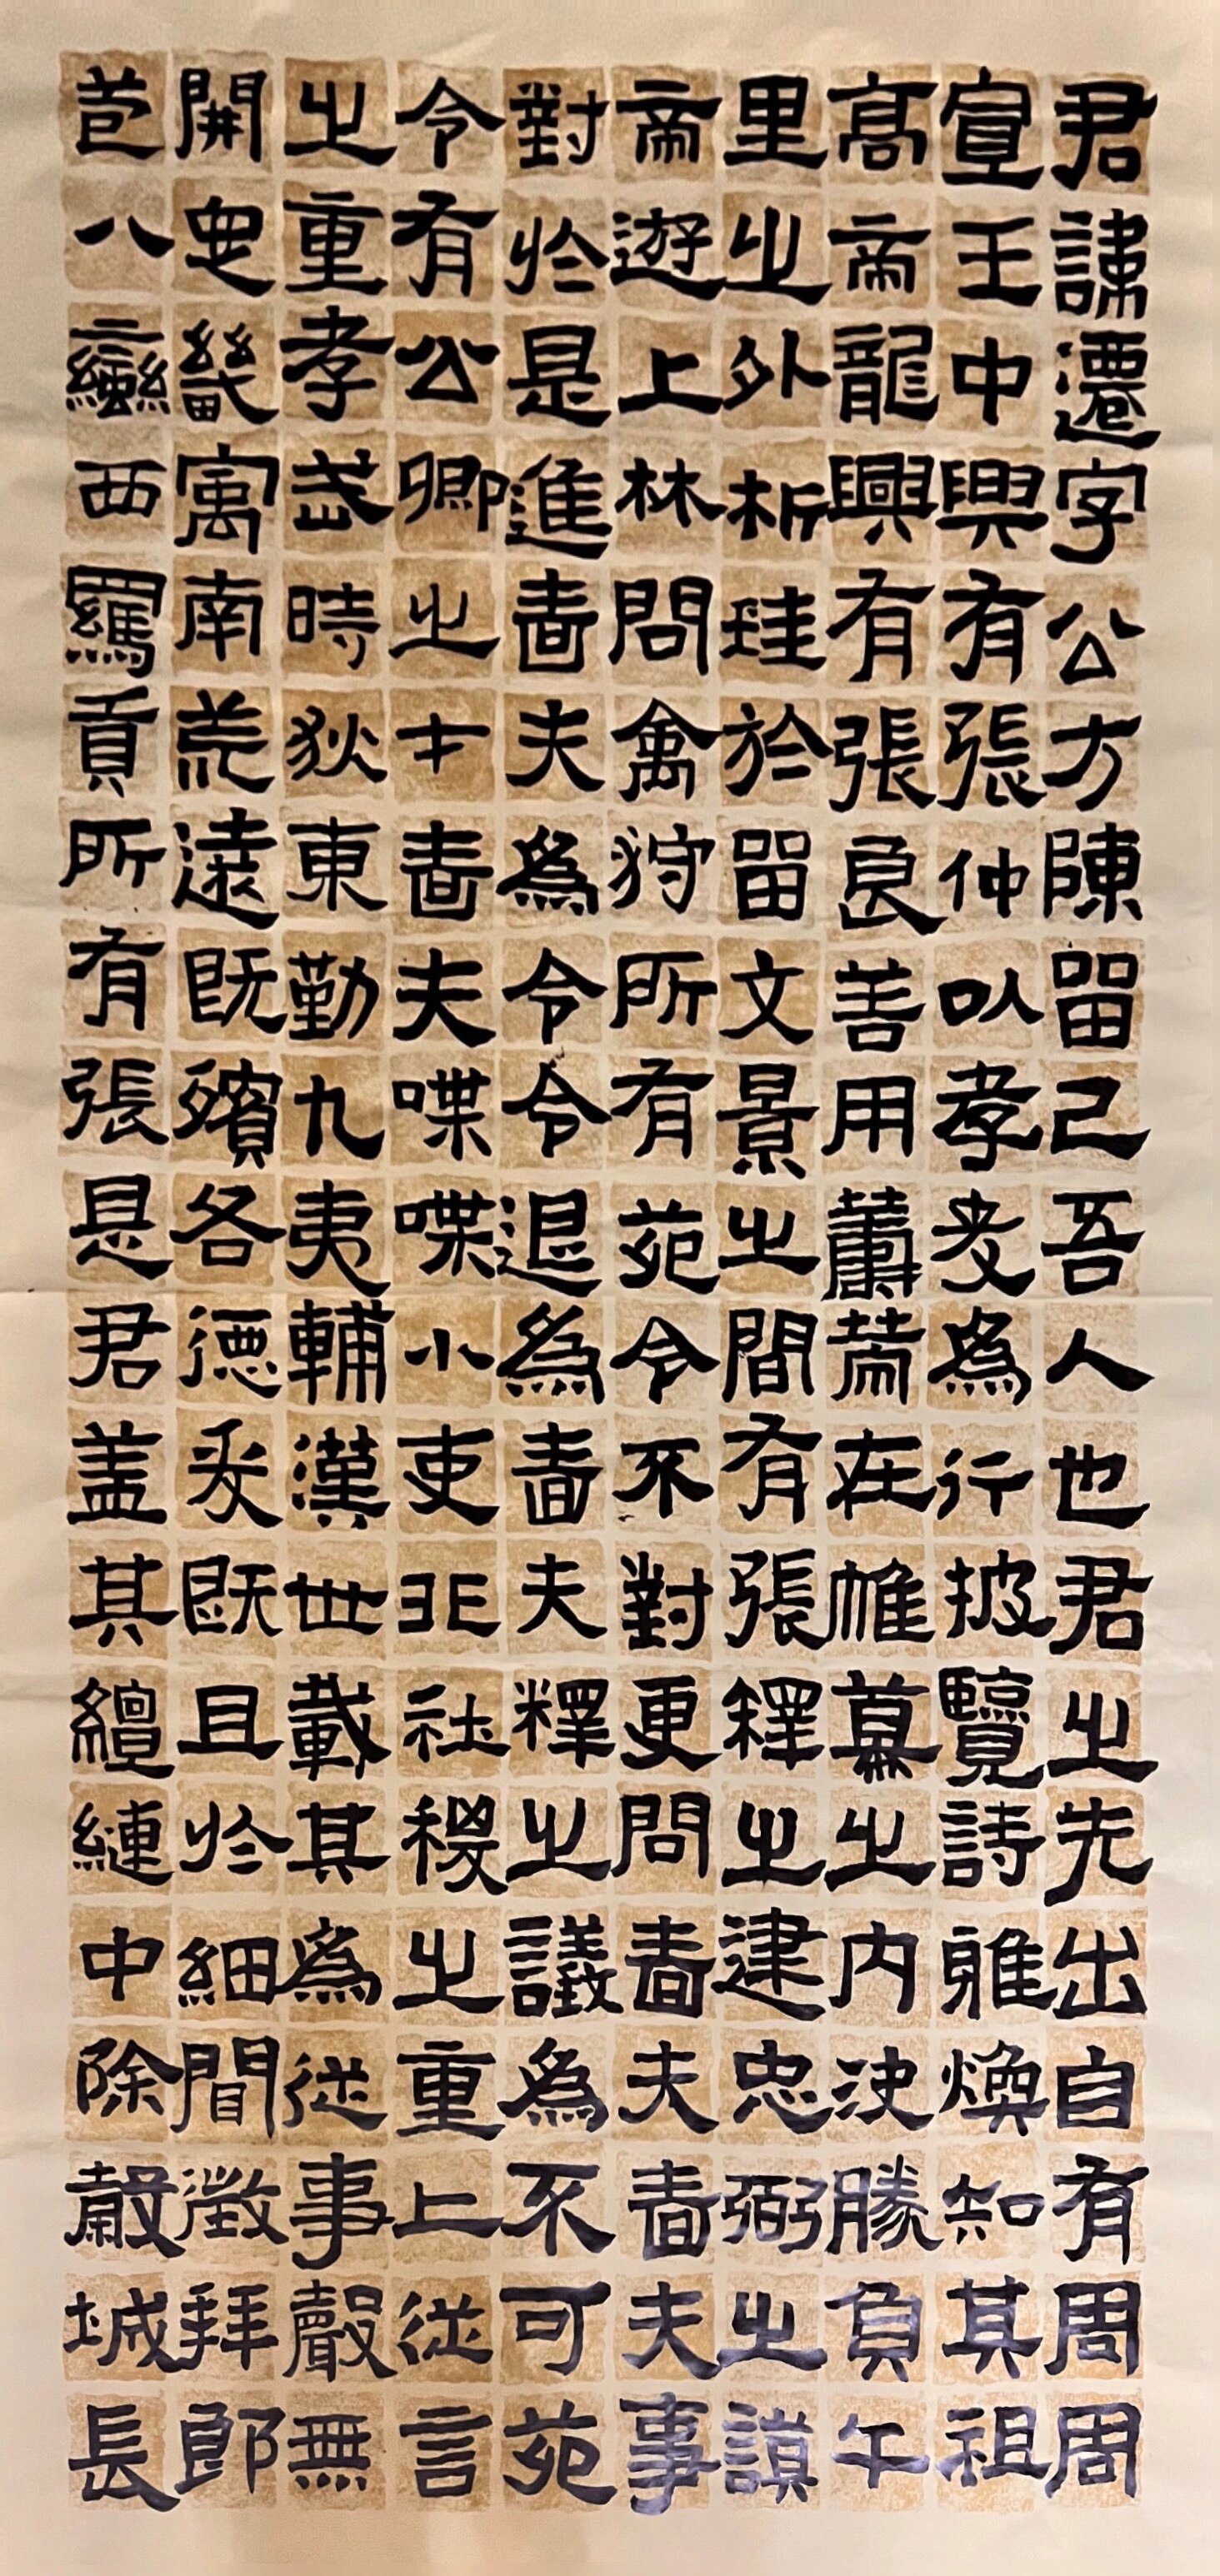 君諱遷字公方陳留己吾人也君之先出自有周周
宣王中興有張仲以孝友為行披覽詩雅煥知其祖
高帝龍興有張良善用籌策在帷幕之內決勝負千
里之外析珪於留文景之間有張釋之建忠弼之謨
帝遊上林問禽狩所有苑令不對更問嗇夫嗇夫事
對於是進嗇夫為令令退為嗇夫釋之議為不可苑
令有公卿之才嗇夫喋喋小吏非社稷之重上從言
之重孝武時狄東勤九夷輔漢世載其為從事聲無
開定畿寓南荒遠既殯各德爰既且於細閒徵拜郎
苞八蠻西羈貢所有張是君蓋其繵縺中除穀城長